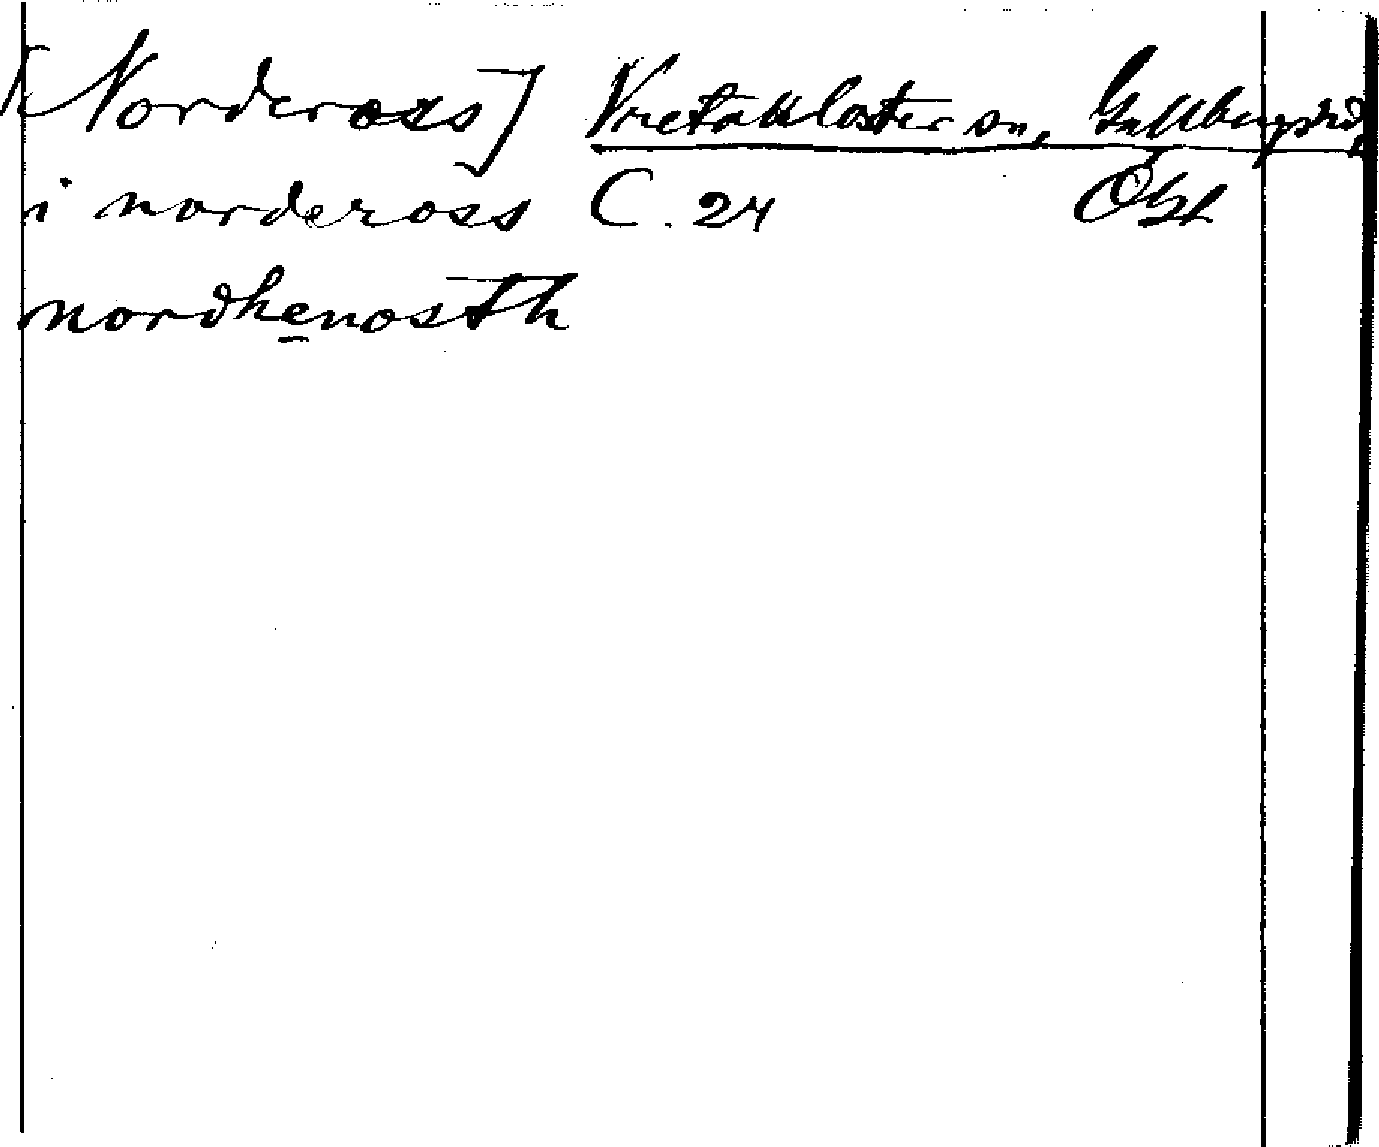 [Norderoxs] Vretakloster sn, Gullbergs hd,
i norderoxs C. 24 Ögl
nordhenosth